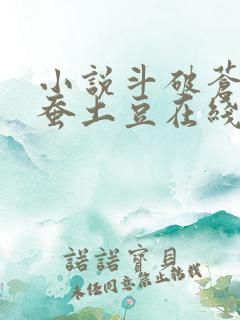 小說斗破蒼
蚕土豆在綫
諾諾寶貝
未经同意禁止轉載